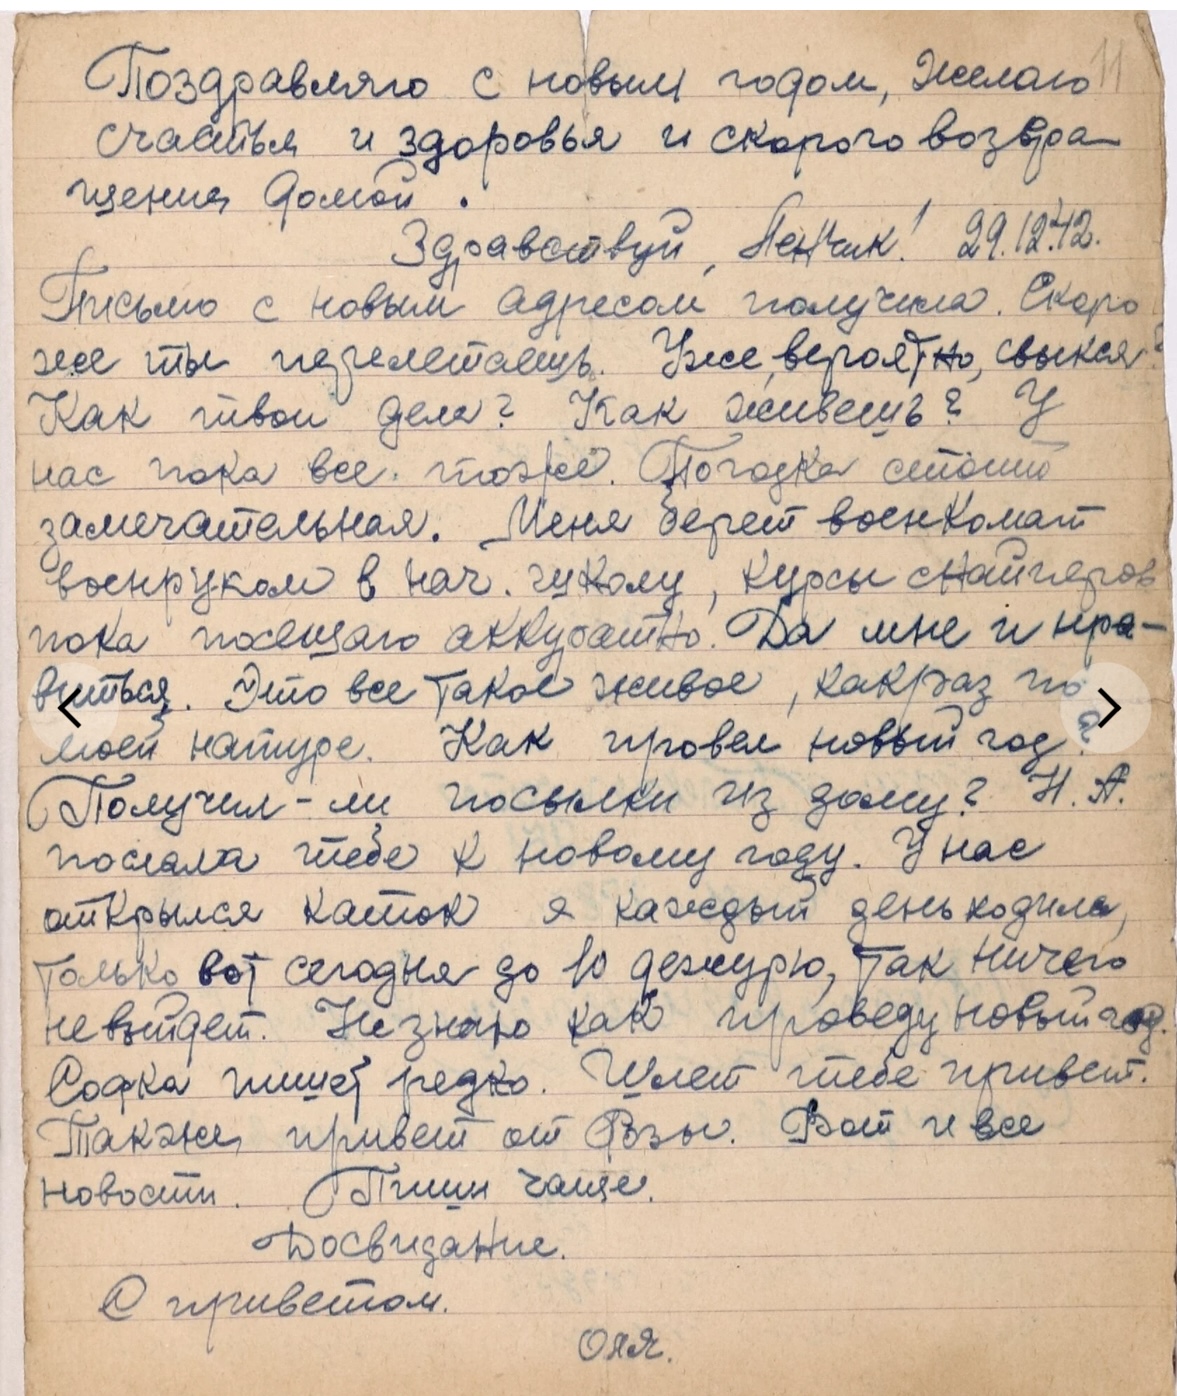 11
Поздравляю с новым годом, желаю
счастья и здоровья и скорого возвра-
щения домой.
Здравствуй, Ленчик! 29.12.42.
Письмо с новым адресом получила. Скоро
же ты перелетаешь. Уже, вероятно, свыкся?
Как твои дела? Как живешь? У
нас пока все тоже. Погодка стоит
замечательная. Меня берет военкомат
военруком в нач. школу, курсы снайперов
пока посещаю аккуратно. Да мне и нра-
виться. Это все такое живое, какраз по
моей натуре. Как провел новый год?
Получил-ли посылки из дому? Н. А.
послала тебе к новому году. У нас
открылся каток я каждый день ходила,
только вот сегодня до 10 дежурю, так ничего
не выйдет. Не знаю как проведу новый год.
Софка пишет редко. Шлет тебе привет.
Также привет от Розы. Вот и все
новости. Пиши чаще.
Досвидание.
С приветом.
Оля.